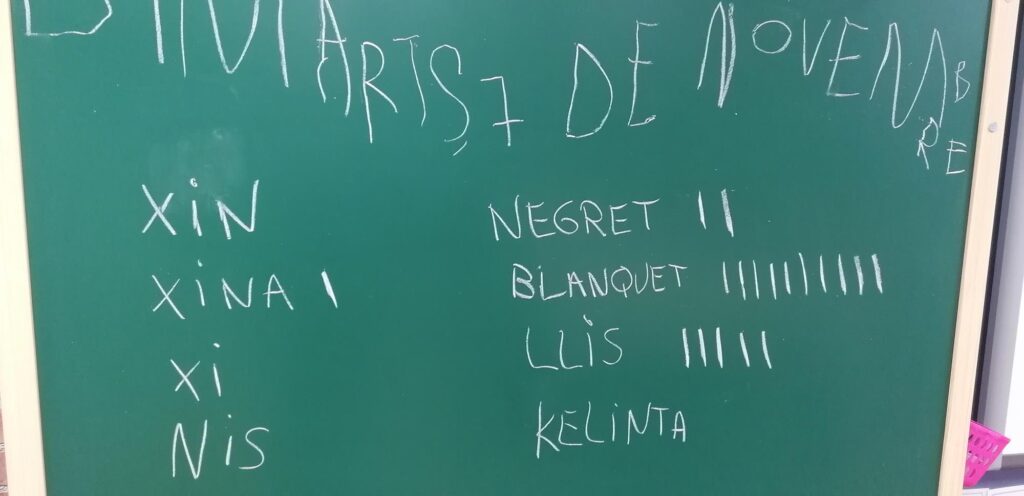 DIMARTS, 7 DE NOVEMBRE
XiN
XiNA |
Xi
NiS
NEGRET ||
BLANQUET ||||||||||
LLiS |||||
KELiNTA